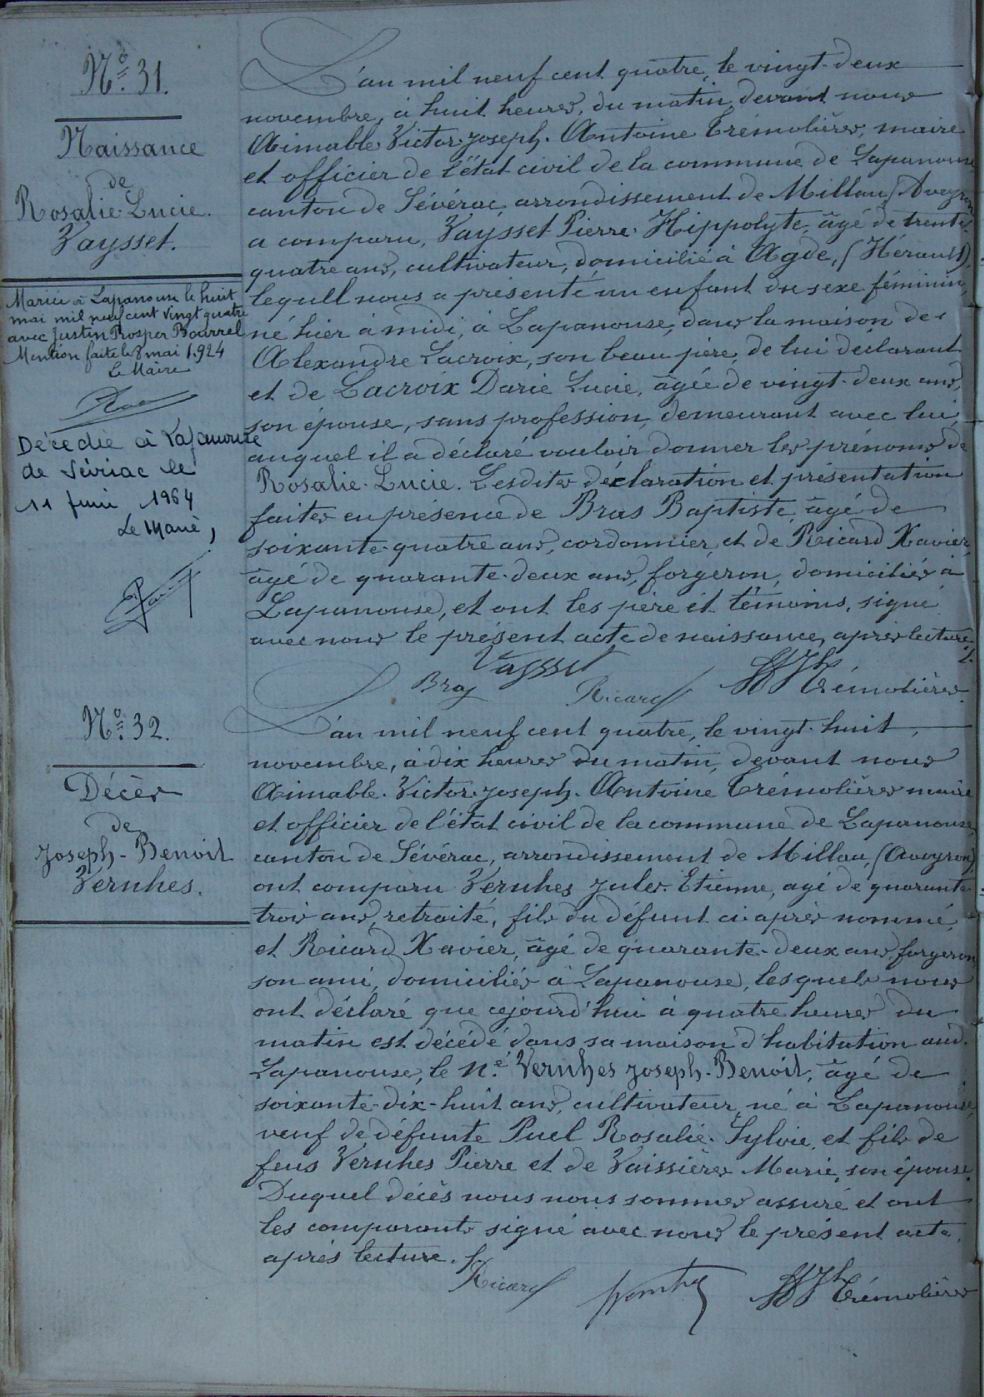 N° 31.
Naissance
de
Rosalie Lucie.
Vaysset.
Mariée à Lapanouse le huit
mai mil neuf cent vingt quatre
avec Justin Prosper Bourrel
Mention faite le 8 mai 1924
Le Maire
Décédée à Lapanouse
de Séverac le
11 juin 1964
Le Maire,
L'an mil neuf cent quatre, le vingt-deux
novembre, à huit heures, du matin, devant nous
Aimable Victor-Joseph-Antoine Trémolières, maire
et officier de l'état civil de la commune de Lapanouse
canton de Sévérac arrondissement de Millau, (Aveyron
a comparu, Vaysset Pierre-Hippolyte, âgé de trente-
quatre ans, cultivateur, domicilié à Agde, (Hérault),
lequell nous a présenté un enfant du sexe féminin,
né hier à midi, à Lapanouse, dans la maison de
Alexandre Lacroix, son beau père, de lui déclarant
et de Lacroix Darie Lucie, âgée de vingt-deux ans,
son épouse, sans profession, demeurant avec lui,
auquel il a déclaré vouloir donner les prénoms de
Rosalie-Lucie. Lesdites déclaration et présentation
faites en présence de Bras Baptiste, âgé de
soixante-quatre ans, cordonnier, et de Ricard Xavier,
âgé de quarante-deux ans, forgeron, domiciliés à
Lapanouse, et ont les père et témoins, signé
avec nous le présent acte de naissance, après lecture
Vaysset
Bras Ricard Trémolières
N° 32.
Décès
de
Joseph-Benoit
Vernhes.
L'an mil neuf cent quatre, le vingt-huit,
novembre, à dix heures du matin, devant nous
Aimable-Victor-Joseph-Antoine Trémolières maire
et officier de l'état civil de la commune de Lapanouse,
canton de Sévérac, arrondissement de Millau, (Aveyron)
ont comparu Vernhes Jules-Etienne, agé de quarante
trois ans, retraité, fils du défunt ci-après nommé,
et Ricard Xavier, âgé de quarante-deux ans, forgeron
son ami, domiciliés à Lapanouse, lesquels nous
ont déclaré que cejourd'hui à quatre heures du
matin est décédé dans sa maison d'habitation aud.
Lapanouse, le n.é Vernhes Joseph-Benoit, âgé de
soixante-dix-huit ans, cultivateur, né à Lapanouse,
veuf de défunte Puel Rosalie-Sylvie, et fils de
feus Vernhes Pierre et de Vaissière Marie, son épouse.
Duquel décès nous nous sommes assuré et ont
les comparants signé avec nous le présent acte,
après lecture.
Ricard Trémolières